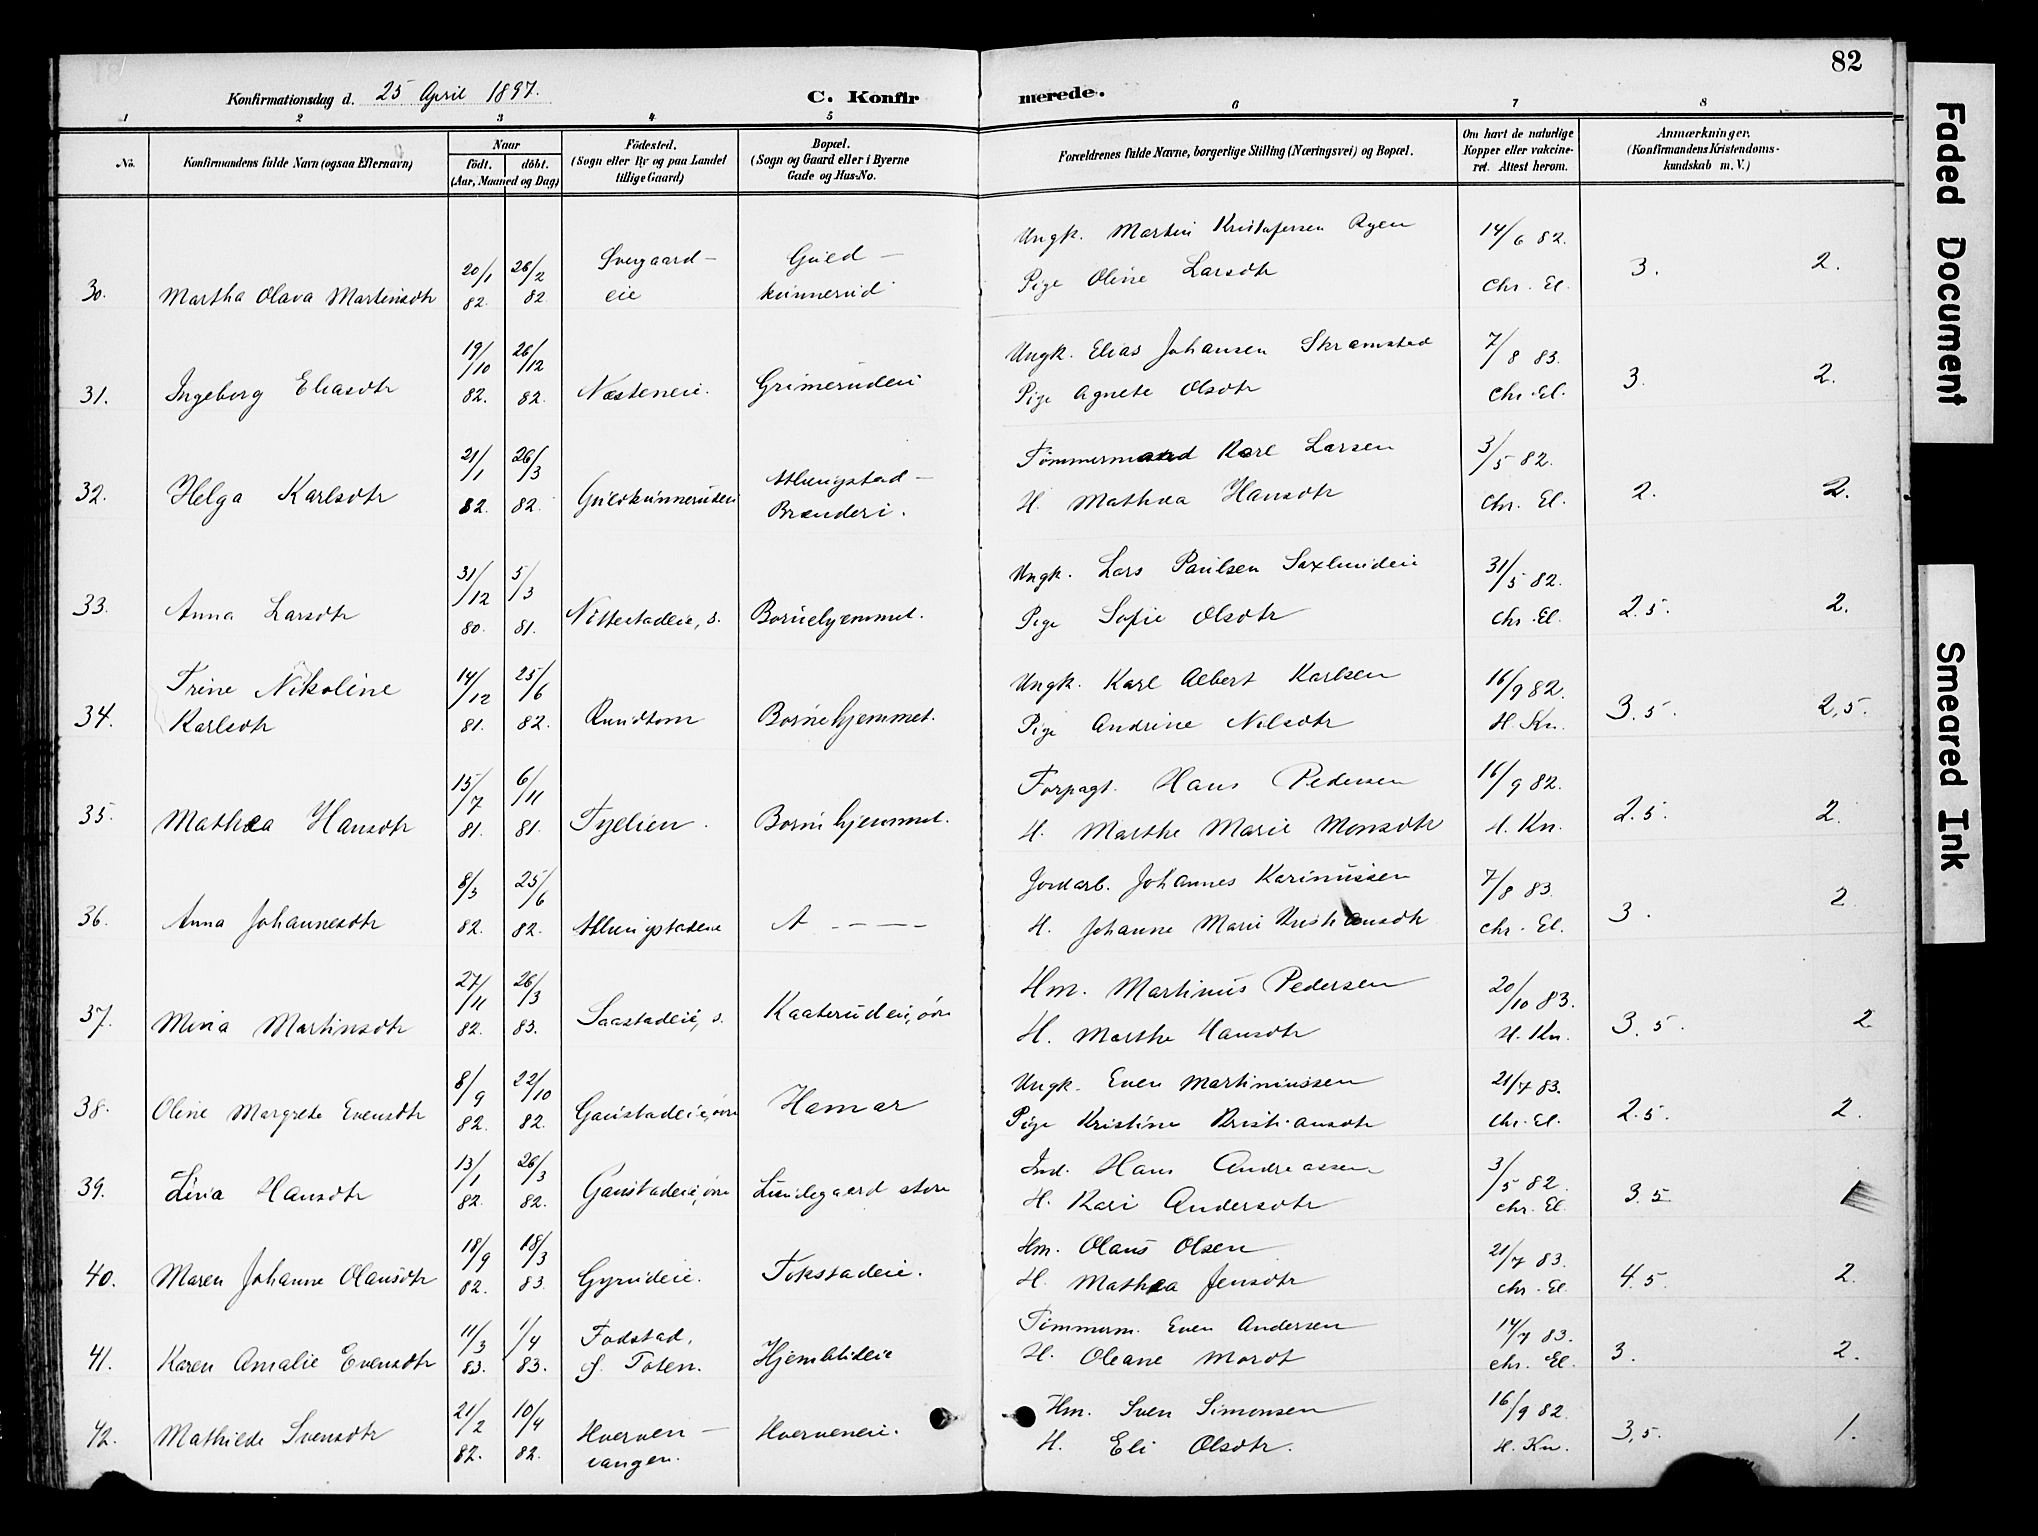 82
Konfirmationsdag d. 25 April 1897.
C. Konfirmerede.
1 2 3 4 5 6 7 8
No.
Konfirmandens fulde Navn (ogsaa Efternavn)
Naar
født. døbt.
(Aar, Maaned og Dag)
Fødested.
(Sogn eller By og paa Landet
tillige Gaard)
Bopæl.
(Sogn og Gaard eller i Byerne
Gade og Hus-No.
Forældrenes fulde Navne, borgerlige Stilling (Næringsvei) og Bopæl.
Om havt de naturlige
Kopper eller vakcine-
ret. Attest herom.
Anmærkninger.
(Konfirmandens Kristendoms-
kundskab m. V.)
30. Martha Olava Martinsdtr 20/1 82. 26/2 82 Svegaard-
eie
Gued-
kvinnerud
Ungk. Martin Kristofersen Ryen
Pige Oline Larsdtr
14/6 82.
Chr. El.
3. 2.
31. Ingeborg Eliasdtr 19/10 82. 26/12 82. Næsteneie. Grimerudeie
Ungk. Elias Johansen Skramstad
Pige Agnete Olsdtr
7/8 83.
Chr. El.
3. 2.
32. Helga Karlsdtr 21/1 82. 26/3 82. Gudkvinnerudeie
Atlungstad-
Brænderi.
Tømmermand Karl Larsen
H. Mathea Hansdtr
3/5 82.
Chr. El.
2. 2.
33. Anna Larsdtr 31/12 80. 5/3 81. Nøttestadeie, s. Børnehjemmet.
Ungk. Lars Paulsen Saxlundeie
Pige Sofie Olsdtr
31/5 82.
Chr. El.
2.5. 2.
34. Trine Nikoline
Karlsdtr
14/12 81. 25/6 82. Rundtom Børnehjemmet.
Ungk. Karl Albert Karlsen
Pige Andrine Nilsdtr
16/9 82.
H. Kn.
3.5. 2,5.
35. Mathea Hansdtr 15/7 81. 6/11 81. Tyelien. Børnehjemmet.
Forpagt. Hans Pedersen
H. Marthe Marie Monsdtr
16/9 82.
H. Kn.
2.5. 2.
36. Anna Johannesdtr 8/3 82. 25/6 82. Atlungstadeie A - - - -
Jordarb. Johannes Karinussen
H. Johanne Marie Kristiansdtr
7/8 83.
Chr. El.
3. 2
37. Mina Martinsdtr 27/11 82. 26/3 83. Saastadeie, s. Kaaterudeie, øvre
Hm. Martinus Pedersen
H. Marthe Hansdtr
20/10 83.
H. Kn.
3.5. 2.
38. Oline Margrete Evensdtr 8/9 82. 22/10 82. Gaustadeie, øvre Hamar
Ungk. Even Martiniussen
Pige Kristine Kristiansdtr
21/7 83.
Chr. El.
2.5. 2.
39. Lina Hansdtr 13/1 82. 26/3 82. Gaustadeie, øvre Lundegaard store
Ind. Hans Andreassen
H. Kari Andersdtr
3/5 82.
Chr. El.
3.5
40. Maren Johanne Olausdtr 18/9 82. 18/3 83. Gyrudeie. Tokstadeie.
Hm. Olaus Olsen
H. Mathea Jensdtr
21/7 83.
Chr. El.
4.5. 2.
41. Karen Amalie Evensdtr 11/3 83. 1/4 83. Fodstad,
Ø. Toten.
Hjemblideie
Tømmerm. Even Andersen
H. Oleane Mordt
14/7 83.
Chr. El.
3. 2.
42. Mathilde Svensdtr 21/2 82. 10/4 82. Hverven-
vangen.
Hverveneie.
Hm. Sven Simonsen
H. Eli Olsdtr.
16/9 82.
H. Kn.
3,5. 1.
Faded Document
Smeared Ink